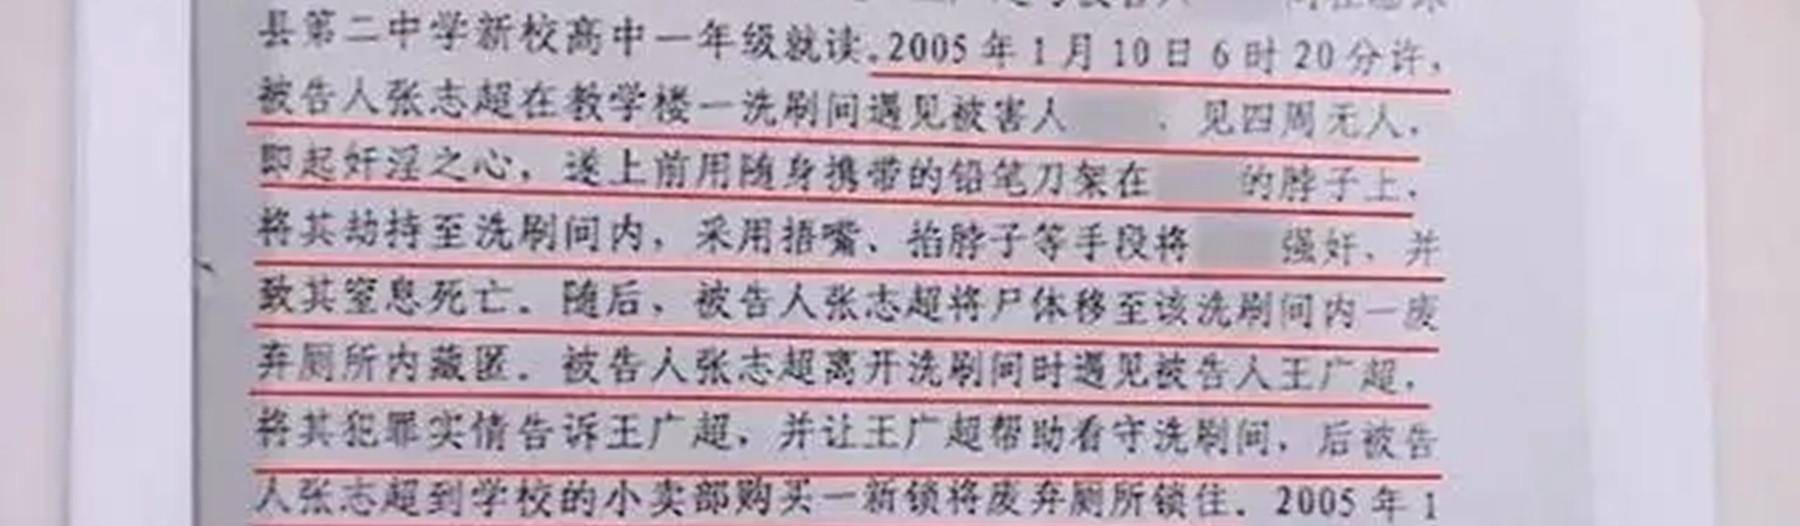 县第二中学新校高中一年级就读。2005 年 1 月 10 日 6 时 20 分许，
被告人张志超在教学楼一洗刷间遇见被害人 、见四周无人，
即起奸淫之心，遂上前用随身携带的铅笔刀架在 的脖子上，
将其劫持至洗刷间内，采用捂嘴、掐脖子等手段将 强奸，并
致其窒息死亡。随后，被告人张志超将尸体移至该洗刷间内一废
弃厕所内藏匿。被告人张志超离开洗刷间时遇见被告人王广超，
将其犯罪实情告诉王广超，并让王广超帮助看守洗刷间，后被告
人张志超到学校的小卖部购买一新锁将废弃厕所锁住。2005 年 1